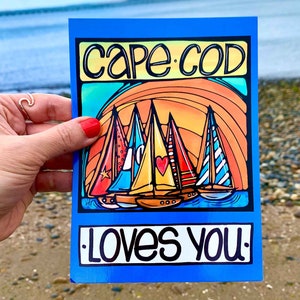 CAPE·COD
·LOVES YOU·